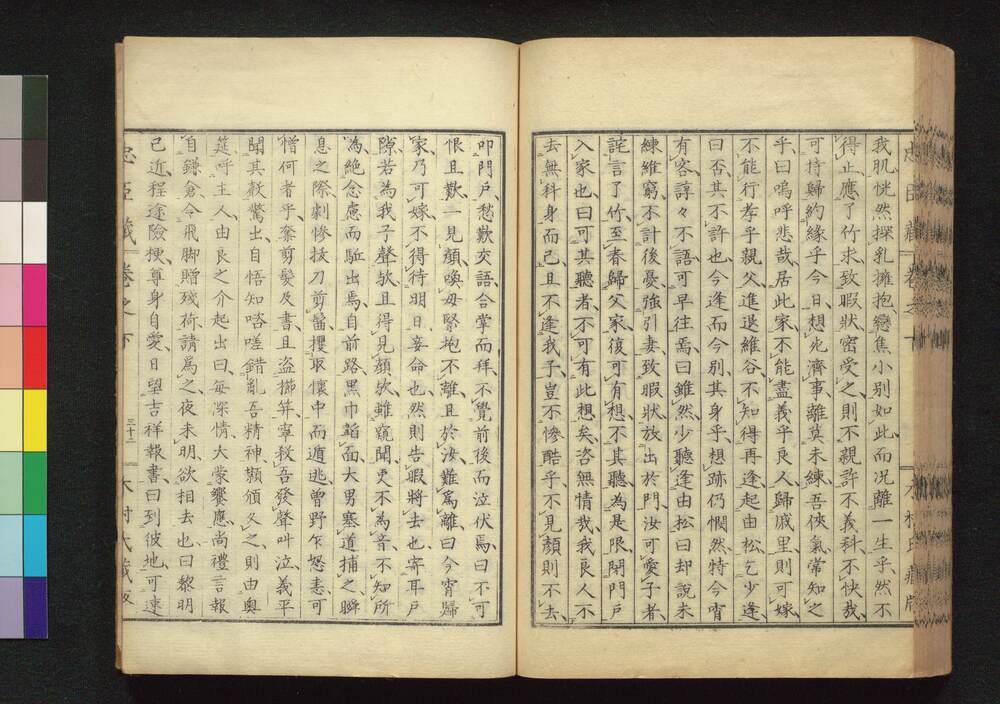 我肌恍然探乳擁抱戀焦小別如此而况離一生乎然不
得止應了竹求致暇狀密受之則不親許不義科不快哉
可持歸約緣乎今日想死濟事離莫未練吾俠氣常知之
乎曰嗚呼悲哉居此家不能盡義乎良人歸滅里則可嫁
不能行孝乎親父進退維谷不知得再逢起由松乞少逢
曰否其不許也今逢而今別其身乎想跡仍惘然特今宵
有客諄々不語可早往焉曰雖然少聽逢由松曰却說未
練維窮不計後憂強引妻致暇狀放出於門汝可愛子者
詫言了竹至春歸父家復可有想不其聽為是限閉門戶
入家也曰可其聽者不可有此想矣咨無情我我良人不
去無科身而已且不逢我子豈不慘酷乎不見顏則不去
叩門戶愁歎交語合掌而拜不覺前後而泣伏焉曰不可
恨且歎一見顏喚母緊抱不離且於汝難為離曰今宵歸
家乃可嫁不得待明日妾命也然則告暇將去也寄耳戶
隙若為我子聲欤且得見顏欤雖窺聞更不為音不知所
為絕念慮而駈出焉自前路黑巾韜面大男塞道捕之瞬
息之際劇慘拔刀剪髷攫取懷中而遁逃曾野乍怒恚可
憎何者乎奪剪髮及書且盜櫛笄寧殺吾發聲叫泣義平
聞其教驚出自悟知咯嗟錯亂吾精神顙頒久之則由奧
莚呼主人由良之介起出曰每深情大蒙饗應尚禮言報
自鎌倉令飛脚贈殘荷請為之夜未明欲相去也曰黎明
已近程途險梗尊身自愛日望吉祥報書曰到彼地可速
忠臣藏 卷之下
三十二
木村氏藏版